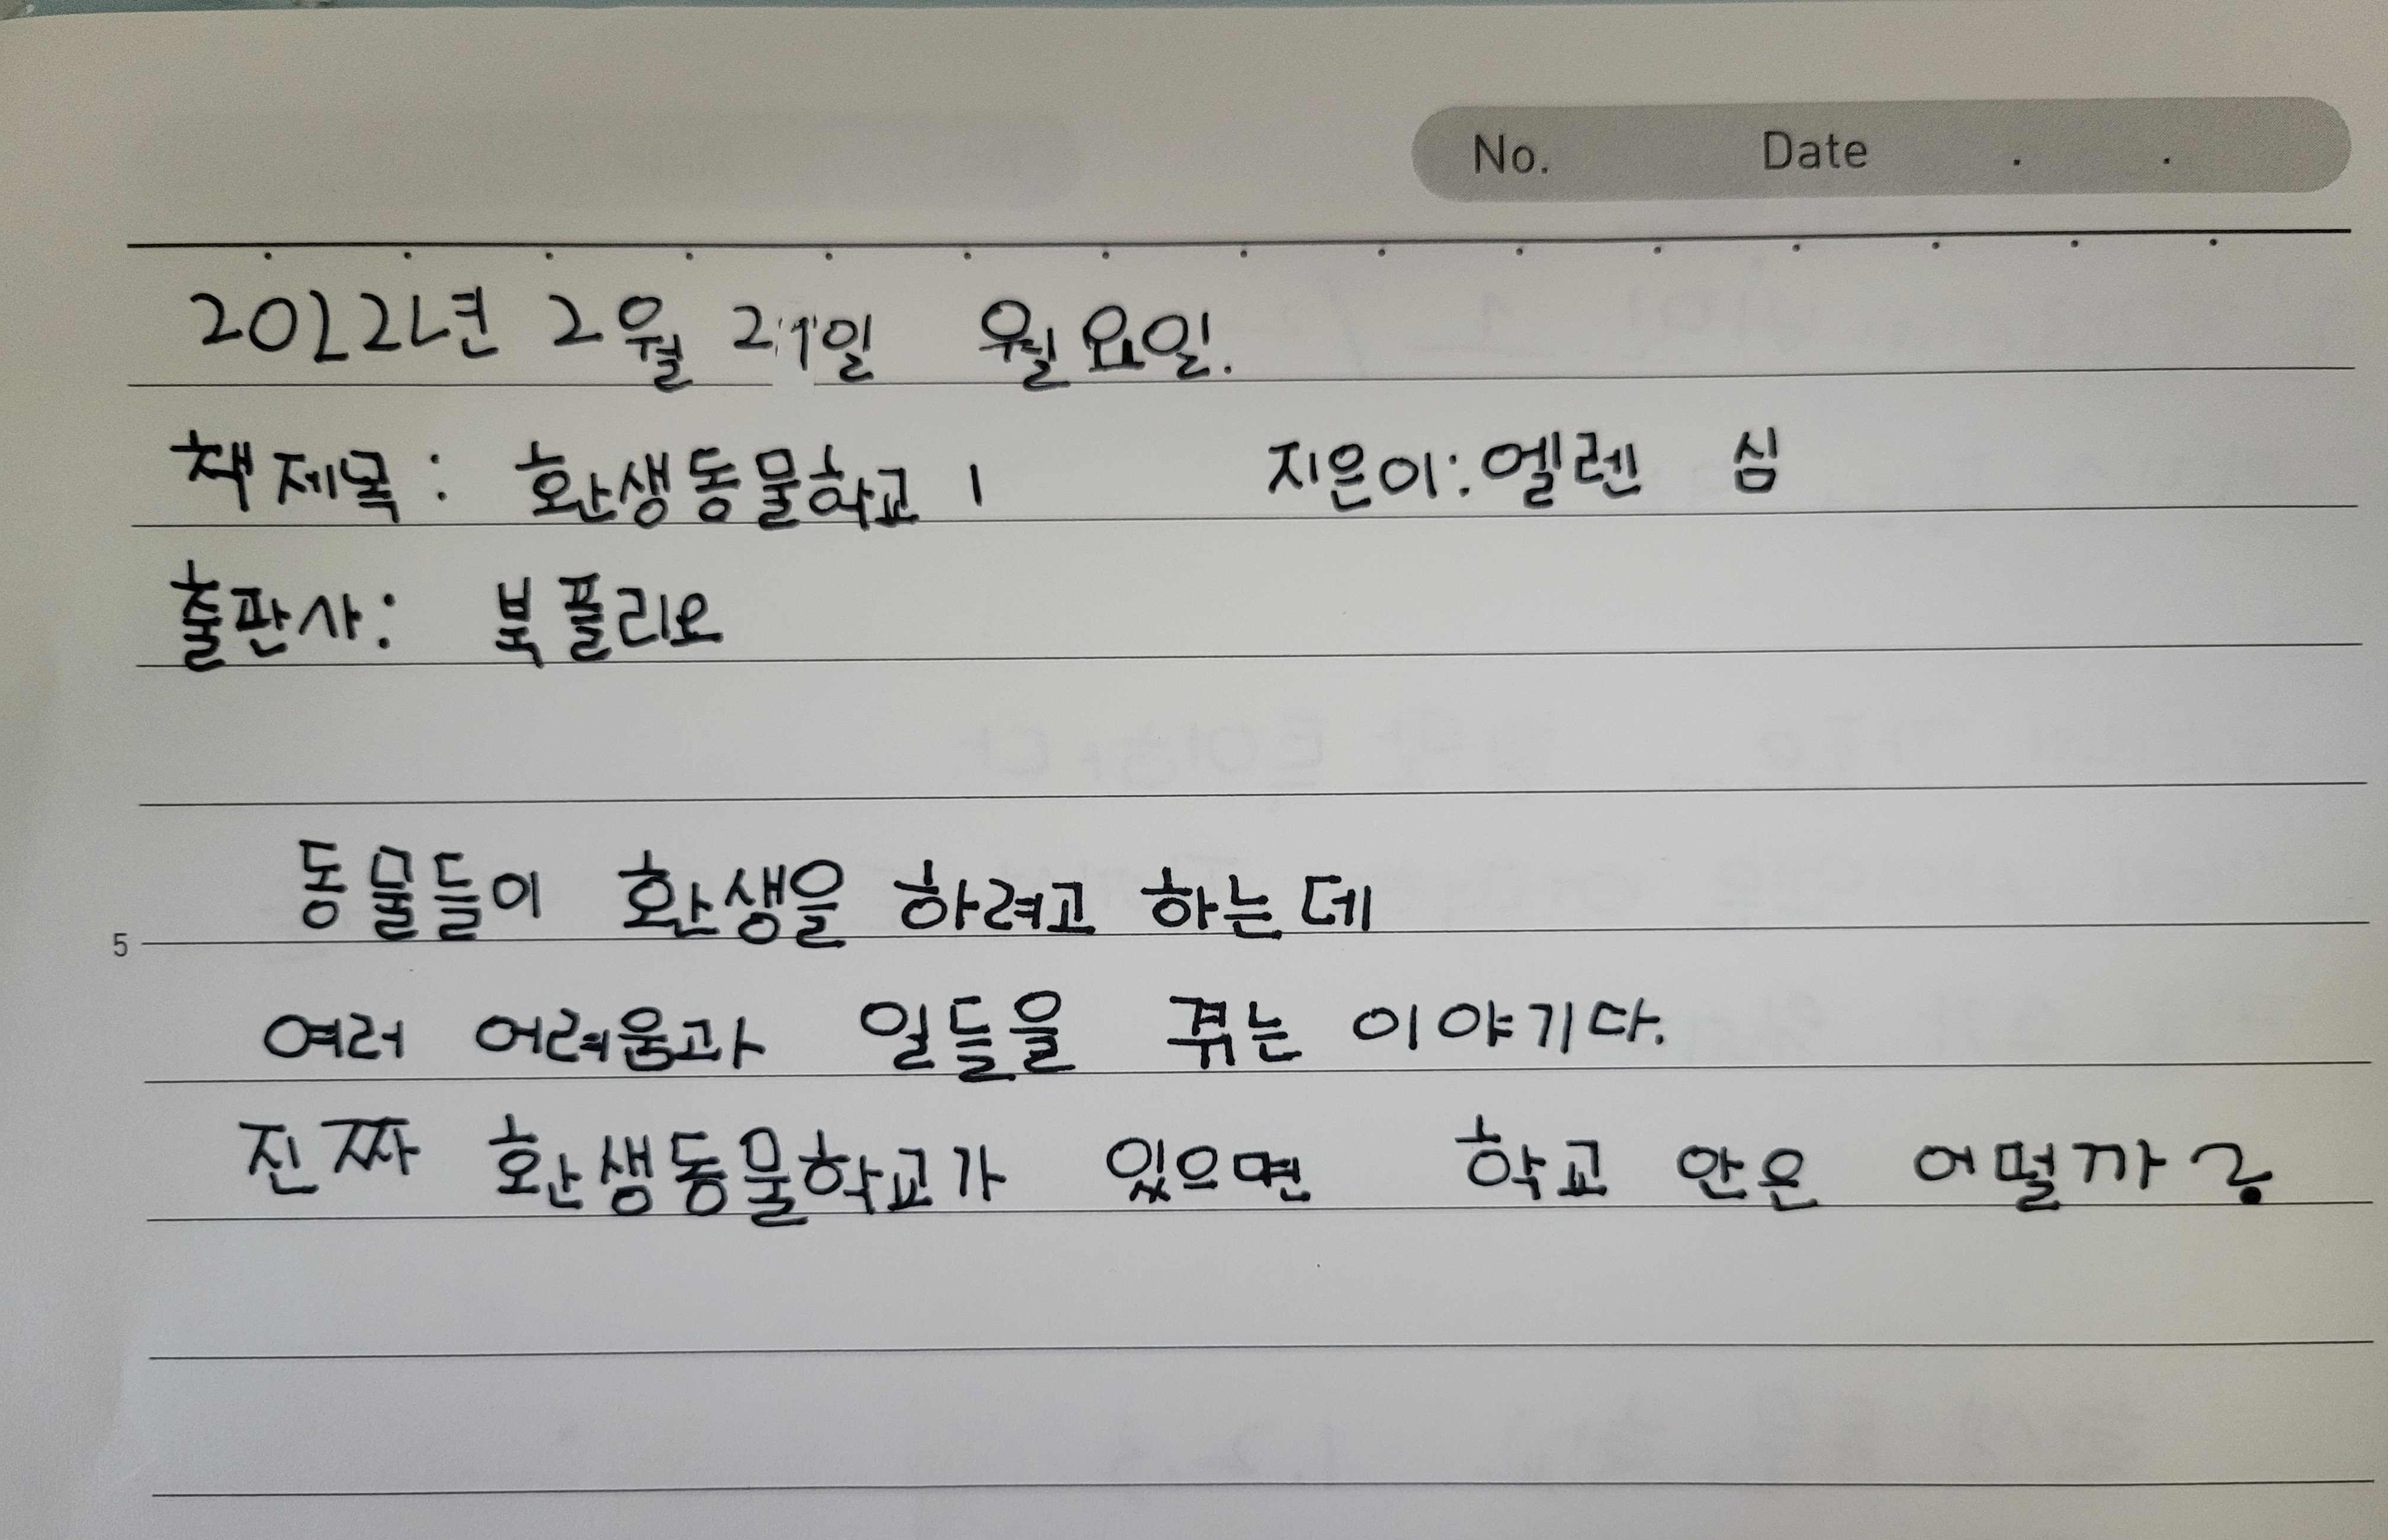 No. Date . .
2022년 2월 21일 월요일.
책제목 : 환생동물학교 1 지은이 : 엘렌 심
출판사 : 북폴리오
동물들이 환생을 하려고 하는데
5
여러 어려움과 일들을 겪는 이야기다.
진짜 환생동물학교가 있으면 학교 안은 어떨까?